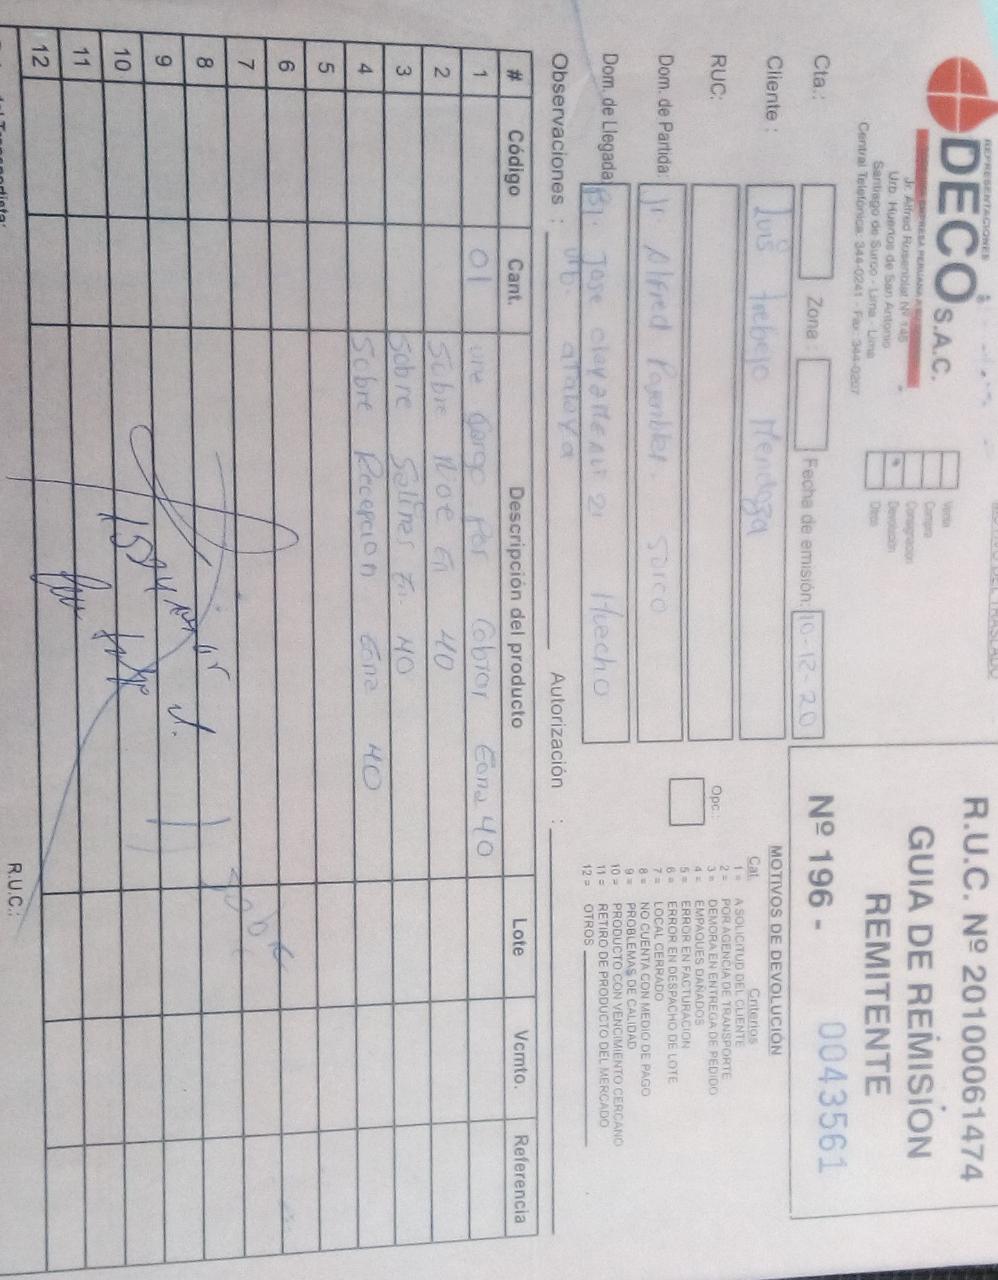 REPRESENTACIONES
DECO S.A.C.
Jr. Alfred Rosenblat Nº 146
Urb. Huertos de San Antonio
Santiago de Surco - Lima - Lima
Central Telefónica: 344-0241 - Fax: 344-0207
Venta
Compra
Consignación
Devolución
Otros
R.U.C. Nº 20100061474
GUIA DE REMISIÓN
REMITENTE
Nº 196 - 0043561
Cta.: Zona: Fecha de emisión: 10-12-20
Cliente: Luis trebejo Mendoza
RUC:
Dom. de Partida: Jr Alfred Surco
Dom. de Llegada: Jose 21 Huecho
Urb. atalaya
Observaciones : Autorización :
Opc.:
MOTIVOS DE DEVOLUCIÓN
Cat. Criterios
1 = A SOLICITUD DEL CLIENTE
2 = POR AGENCIA DE TRANSPORTE
3 = DEMORA EN ENTREGA DE PEDIDO
4 = EMPAQUES DAÑADOS
5 = ERROR EN FACTURACION
6 = ERROR EN DESPACHO DE LOTE
7 = LOCAL CERRADO
8 = NO CUENTA CON MEDIO DE PAGO
9 = PROBLEMAS DE CALIDAD
10 = PRODUCTO CON VENCIMIENTO CERCANO
11 = RETIRO DE PRODUCTO DEL MERCADO
12 = OTROS
# Código Cant. Descripción del producto Lote Vcmto. Referencia
1 01 une Cargo Por Cobrar Eona 40
2 Sobre En 40
3 Sobre Salines En 40
4 Sobre Recepcion Eona 40
5
6
7
8
9
10
11
12
R.U.C.: